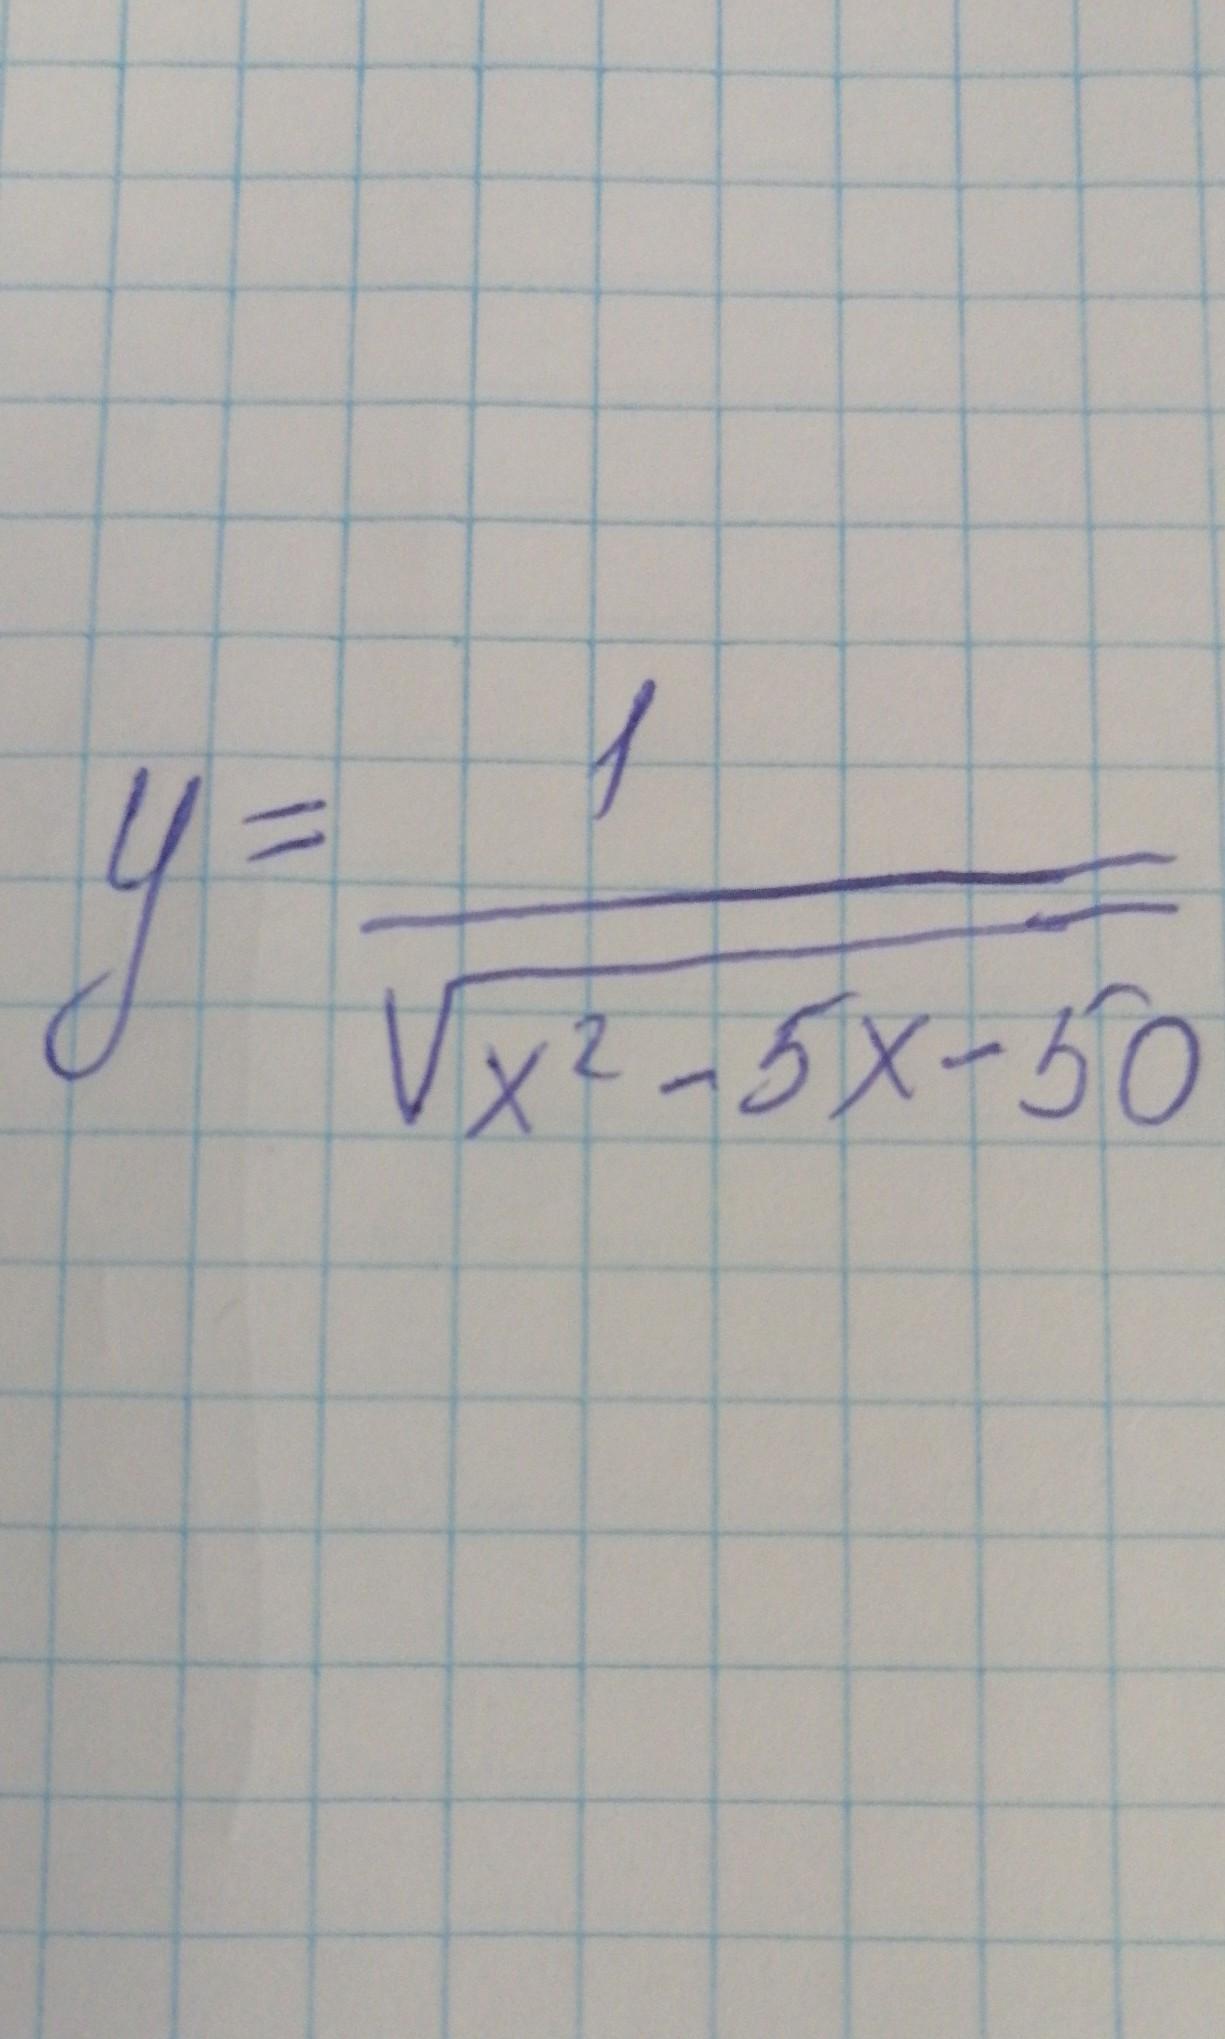 y = 1/√(x² - 5x - 50)